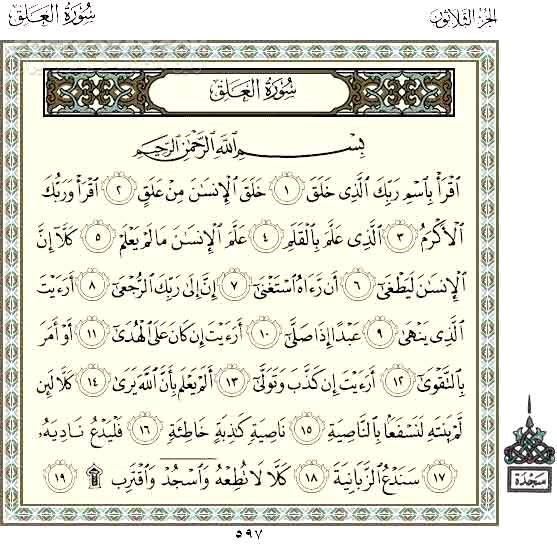 سُورَةُ العَلَقِ
الجُزْءُ الثَّلَاثُونَ
سُورَةُ العَلَقِ
بِسْمِ اللَّهِ الرَّحْمَٰنِ الرَّحِيمِ
اقْرَأْ بِاسْمِ رَبِّكَ الَّذِي خَلَقَ ١ خَلَقَ الْإِنسَٰنَ مِنْ عَلَقٍ ٢ اقْرَأْ وَرَبُّكَ
الْأَكْرَمُ ٣ الَّذِي عَلَّمَ بِالْقَلَمِ ٤ عَلَّمَ الْإِنسَٰنَ مَا لَمْ يَعْلَمْ ٥ كَلَّآ إِنَّ
الْإِنسَٰنَ لَيَطْغَىٰٓ ٦ أَن رَّءَاهُ اسْتَغْنَىٰٓ ٧ إِنَّ إِلَىٰ رَبِّكَ الرُّجْعَىٰٓ ٨ أَرَءَيْتَ
الَّذِي يَنْهَىٰ ٩ عَبْدًا إِذَا صَلَّىٰٓ ١٠ أَرَءَيْتَ إِن كَانَ عَلَى الْهُدَىٰٓ ١١ أَوْ أَمَرَ
بِالتَّقْوَىٰٓ ١٢ أَرَءَيْتَ إِن كَذَّبَ وَتَوَلَّىٰٓ ١٣ أَلَمْ يَعْلَم بِأَنَّ اللَّهَ يَرَىٰ ١٤ كَلَّا لَئِن
لَّمْ يَنتَهِ لَنَسْفَعًۢا بِالنَّاصِيَةِ ١٥ نَاصِيَةٍ كَٰذِبَةٍ خَاطِئَةٍ ١٦ فَلْيَدْعُ نَادِيَهُۥ
١٧ سَنَدْعُ الزَّبَانِيَةَ ١٨ كَلَّا لَا تُطِعْهُ وَاسْجُدْ وَاقْتَرِب ۩ ١٩
سَجْدَة
٥٩٧